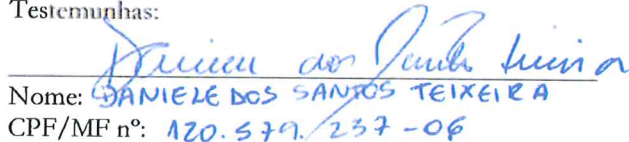 Testemunhas:
dos Santos Teixeira
Nome: DANIELE DOS SANTOS TEIXEIRA
CPF/MF nº: 120.579.237-06